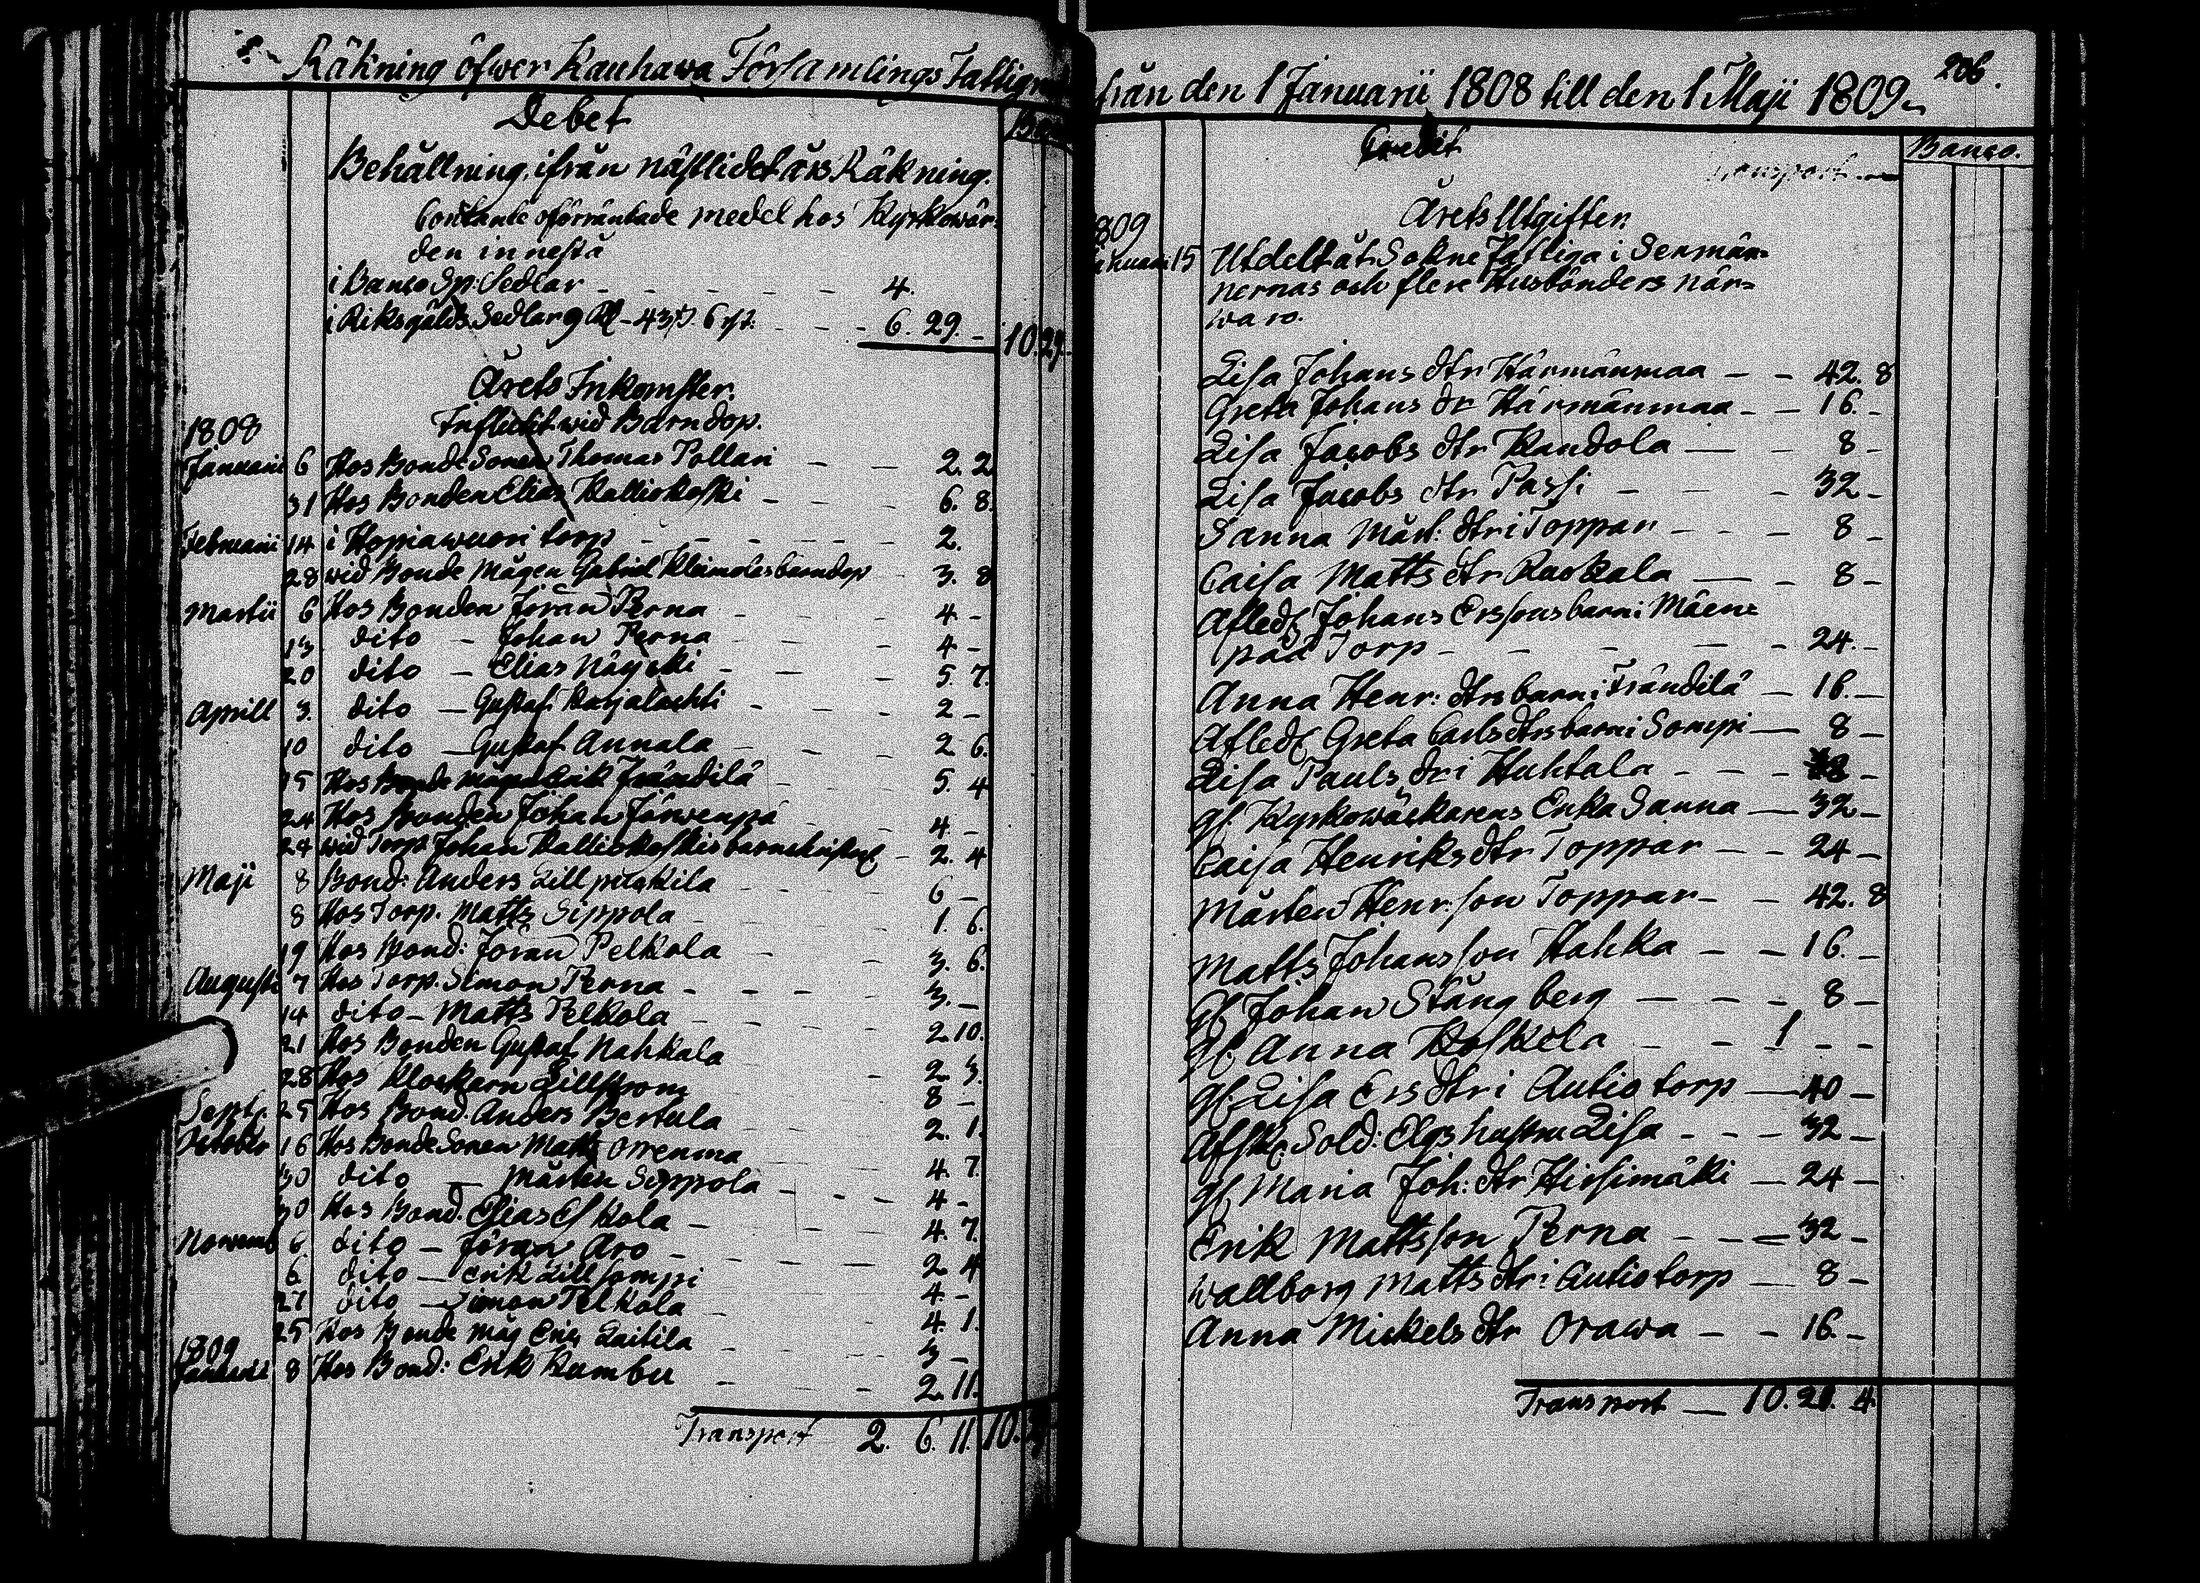 Räkning öfwer Kauhawa Församlings Fattig
Debet
Behållning ifrån nästlidet års Räkning.
Contante oförräntade medel hos Kyrkowär-
den innestå
i Banco Sp: Sedlar - - - 4.
i Riksgälds Sedlar 9 Rd - 43 s. 6 rst. - - - 6. 29. - 10. 29.
Årets Inkomster.
Influtit wid Barndop.
1808
Januarii 6 Hos Bonde Sonen Thomas Pollari - - 2. 2
31 Hos Bonden Elias Kalliokoski - - 6. 8.
Februarii 14 i Hopiawuori torp - - - 2.
28 wid Bonde Mågen Gabriel Kleimolas barndop - 3. 8
Martii 6 Hos Bonden Jöran Perna - - 4 -
13 dito - Johan Perna - - 4 -
20 dito - Elias Näyski - - 5. 7.
Aprill 3. dito - Gustaf Karjalachti - - 2 -
10 dito - Gustaf Annala - - 2 6.
15 Hos Bonde mågen Erik Frändilä - - 5. 4
24 Hos Bonden Johan Järwenpä - - 4 -
24 wid Torp. Johan Kalliokoskis - 2. 4
Maji 8 Bond: Anders Lill - - 6 -
8 Hos Torp. Matts Sippola - - 1. 6.
19 Hos Bond: Jöran Pelkola - - 3. 6.
Augusti 7 Hos Torp. Simon Perna - - - 3. -
14 dito - Matts Pelkola - - - 2 10.
21 Hos Bonden Gustaf Nahkala - 2 3.
28 Hos Klockaren Lillström 8 -
Sept. 25 Hos Bond. Anders Bertula - - 2. 1.
October 16 Hos Bonde Sonen Matts Orrenma - - 4. 7.
30 dito - Mårten Sippola - - - 4 -
30 Hos Bond. Elias Eskola - - 4. 7.
Novemb 6. dito - Jöran Aro - - - 2 4
6. dito - Erik Lillsompi 4. -
27 dito - Simon Pelkola - - 4. 1.
25 Hos Bonde Måg Eric Laitila - - 3 -
1809
Januarii 8 Hos Bond: Erik - - - 2. 11.
Transport 2. 6. 11. 10.
från den 1 Januarii 1808 till den 1 Maji 1809
206.
Credit
Banco.
Transport
Årets Utgifter.
1809
Januari 15 Utdelt åt Sokne Fattiga i Sexmän-
nernas och flere Husbönders när-
waro.
Lisa Johans dtr Härmänmaa - - 42. 8
Greta Johans dr Härmänmaa - - 16. -
Lisa Jacobs dtr Kandola - - 8 -
Lisa Jacobs dtr Passi - - - 32 -
Sanna Mårt: dtr i Toppar - - - 8 -
Caisa Matts dtr Ruokala - - 8 -
Afled Johans Erssons barn i Mäen-
pää Torp - - - - - 24. -
Anna Henr: dtrs barn i Frändilä - 16. -
Afled Greta Carls dtrs barn i Sompi - 8 -
Lisa Pauls dr i Huhtala - - - -
gl. Kyrkowäckarens Enka Sanna - 32 -
Caisa Henriks dtr Toppar - - 24 -
Mårten Henr:son Toppar - - 42. 8
Matts Johansson Hahka - - 16. -
gl. Johan Stångberg - - - 8 -
gl. Anna Koskela - - 1 - -
gl. Lisa Ers dtr i Autio torp - 40 -
Afsk. Sold: Elgs hustru Lisa - - - 32 -
gl. Maria Joh: dtr Hirsimäki - 24 -
Erik Mattsson Perna - - - 32 -
Wallborg Matts dtr i Autio torp - 8 -
Anna Mickels dtr Orawa - - 16. -
Transport - 10. 21. 4.